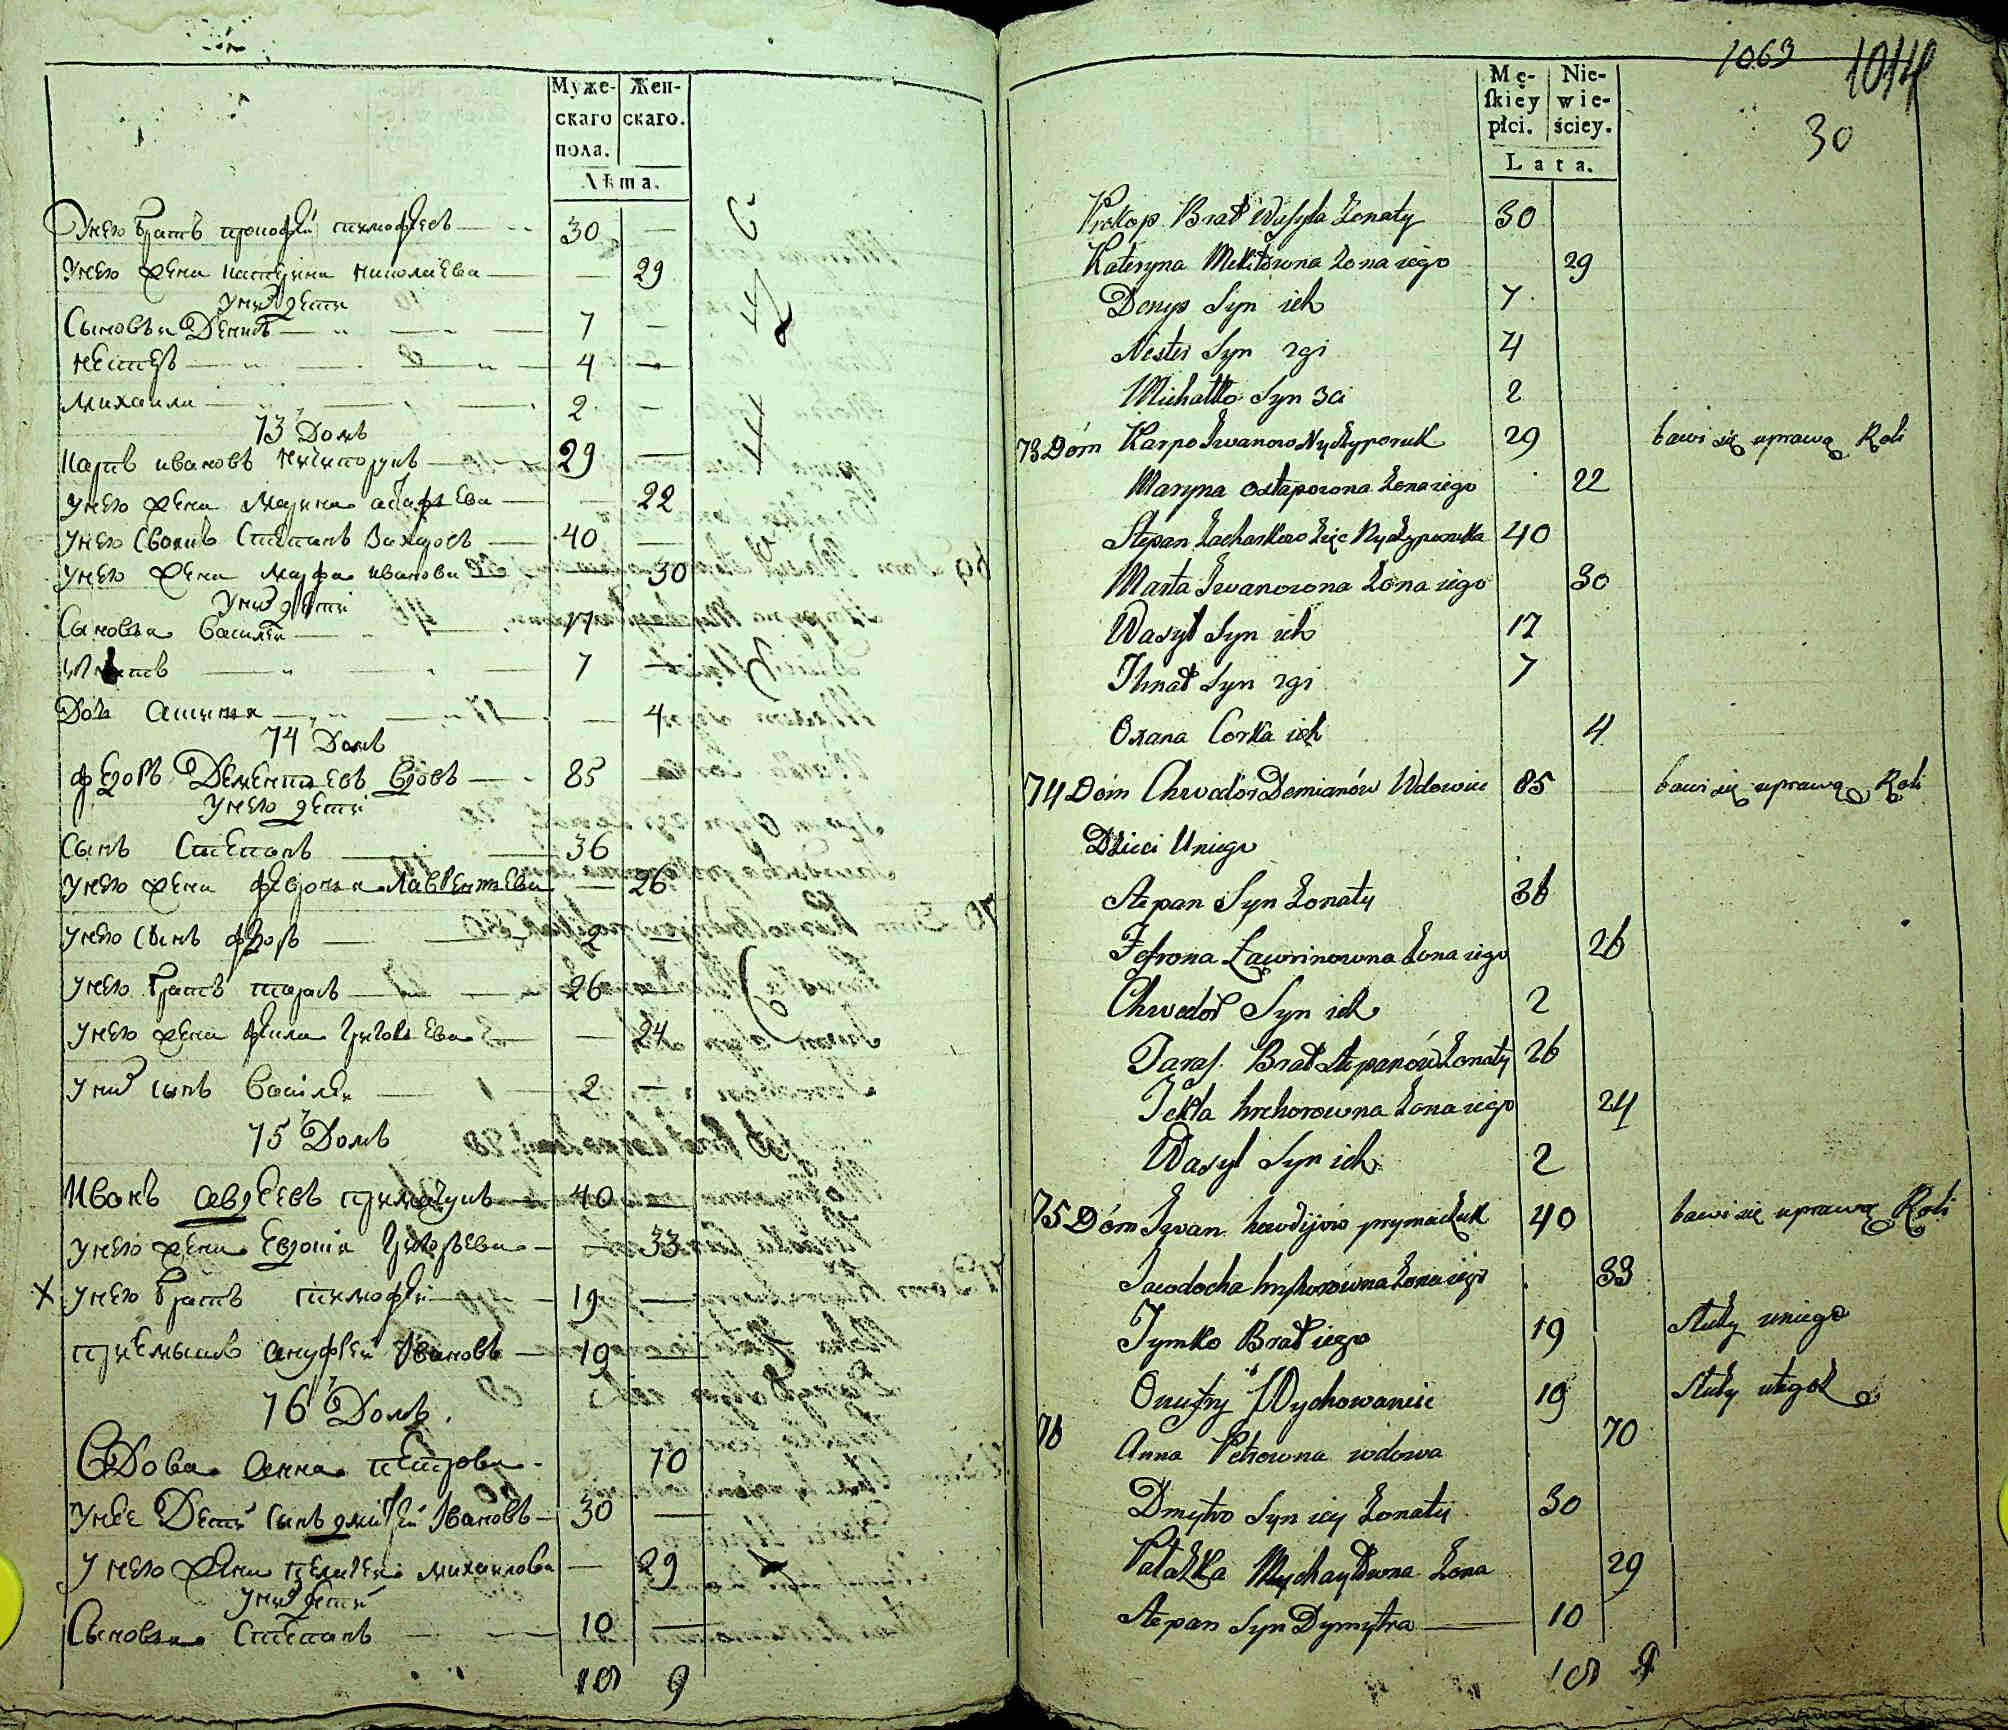 Мужескаго пола.
Женскаго.
Лѣта.
У него братъ прокофій тимофѣевъ 30 —
У него жена катерина николаева — 29
У нихъ дети
Сыновья Денисъ 7 —
нестеръ 4 —
михаила 2 —
73 Домъ
Карпъ ивановъ никипорукъ 29 —
У него жена марина астафьева — 22
У него своякъ Степанъ Захаровъ 40 —
У него жена марфа иванова — 30
У нихъ дети
Сыновья василей 17
Игнатъ 7 —
Дочь аксинья — 4
74 Домъ
Федоръ Дементьевъ вдовъ 85 —
У него дети
Сынъ Степанъ 36
У него жена феврония лаврентьева — 26
У него сынъ федоръ 2 —
У него братъ тарасъ 26 —
У него жена фекла григорьева — 24
У нихъ сынъ василей 2 —
75 Домъ
Иванъ авдеевъ примачукъ 40 —
У него жена евдокия григорьева — 33
х У него братъ тимофей 19 —
приемышъ ануфрей ивановъ 19 —
76 Домъ.
Вдова анна петрова 70
У нее Дети сынъ дмитрей ивановъ 30 —
У него жена пелагея михаилова — 29
У нихъ дети
Сыновья Степанъ 10 —
18 9
1069 1014
30
Męskiey płci.
Niewieściey.
Lata.
Prokop Brat Wasyla Żonaty 30
Kateryna Mikitowna Żona iego 29
Denys Syn ich 7
Nester Syn 2gi 4
Michałko Syn 3ci 2
73 Dóm Karpo Iwanow Nyczyporuk 29 bawi się uprawą Roli
Maryna Ostapowna Żona iego 22
Stepan Zacharkow Zięc Nyczyporuka 40
Marta Iwanowna Żona iego 30
Wasyl Syn ich 17
Ihnat Syn 2gi 7
Oxana Corka ich 4
74 Dóm Chwedor Demianów Wdowiec 85 bawi się uprawą Roli
Dzieci Uniego
Stepan Syn Żonaty 36
Jefrona Ławrinowna Żona iego 26
Chwedor Syn ich 2
Taras Brat Stepanów Żonaty 26
Tekla hrehorowna Żona iego 24
Wasyl Syn ich 2
75 Dóm Iwan hawdijow prymaczuk 40 bawi się uprawą Roli
Jawdocha hryhorowna Żona iego 33
Tymko Brat iego 19 Służy uniego
Onufry Wychowaniec 19 Służy utegoż
76 Anna Petrowna wdowa 70
Dmytro Syn iey Żonaty 30
Palażka Mychayłowna Żona 29
Stepan Syn Dymytra 10
18 9